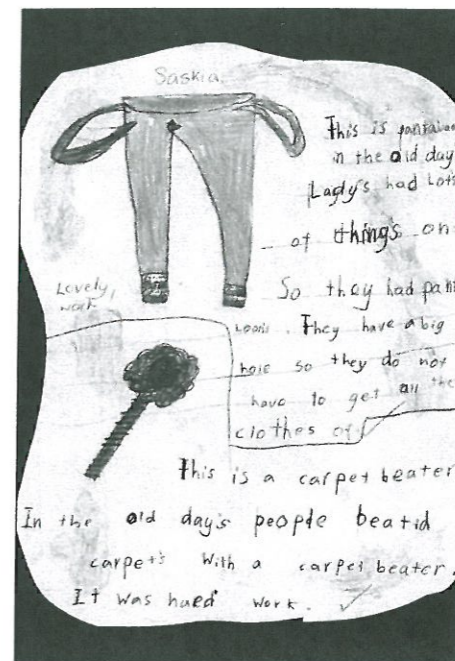 Saskia
This is pantaloo
in the old day
Lady's had Lots
of thing's on
So they had pant
Lovely,
work
loons. They have a big
hole so they do not
have to get all the
clothes of
This is a carpet beater
In the old day's people beatid
carpet's with a carpet beater.
It was hard work.